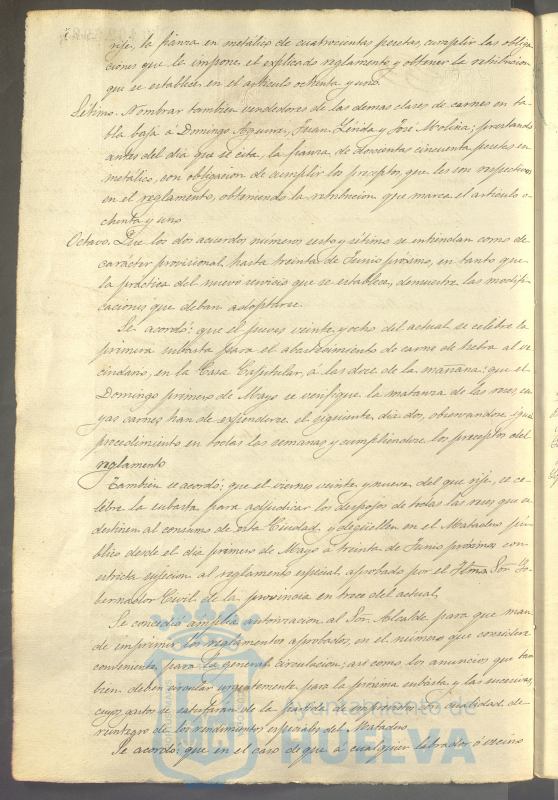 rije, la fianza en metálico de cuatrocientas pesetas, cumplir las obliga-
ciones que le impone el explicado reglamento y obtener la retribucion
que se establece en el articulo ochenta y uno.
Sétimo. Nombrar tambien vendedores de las demas clases de carnes en ta-
bla baja á Domingo Aguirre, Juan Lérida y José Molina; prestando
antes del dia que se cita, la fianza de doscientas cincuenta pesetas en
metálico, con obligacion de cumplir los preceptos que les son respectivos
en el reglamento, obteniendo la retribucion que marca el articulo o-
chenta y uno
Octavo. Que los dos acuerdos números sesto y sétimo se entiendan como de
carácter provisional hasta treinta de Junio próximo, en tanto que
la práctica del nuevo servicio que se establece, demuestre las modifi-
caciones que deban adoptarse.
Se acordó: que el jueves veinte y ocho del actual se celebre la
primera subasta para el abastecimiento de carne de hebra al ve-
cindario, en la Casa Capitular, á las doce de la mañana: que el
Domingo primero de Mayo se verifique la matanza de las reses, cu-
yas carnes han de expenderse el siguiente dia dos, observandose igual
procedimiento en todas las semanas y cumpliendose los preceptos del
reglamento
Tambien se acordó: que el viernes veinte y nueve del que rije, se ce-
lebre la subasta para adjudicar los despojos de todas las reses que se
destinen al consumo de esta Ciudad y degüellen en el Matadero pú-
blico desde el dia primero de Mayo á treinta de Junio próximos con
estricta sujecion al reglamento especial, aprobado por el Iltmo. Sor. Go-
bernador Civil de la provincia en trece del actual.
Se concedió amplia autorizacion al Sor. Alcalde para que man-
de imprimir los reglamentos aprobados, en el número que considere
conveniente para la general circulacion; asi como los anuncios que tam-
bien deben circular urgentemente para la próxima subasta y las sucesivas,
cuyos gastos se satisfarán de la partida de imprevistos con cualidad de
reintegro de los rendimientos especiales del Matadero.
Se acordó: que en el caso de que á cualquier labrador ó vecino
Ayuntamiento de
HUELVA